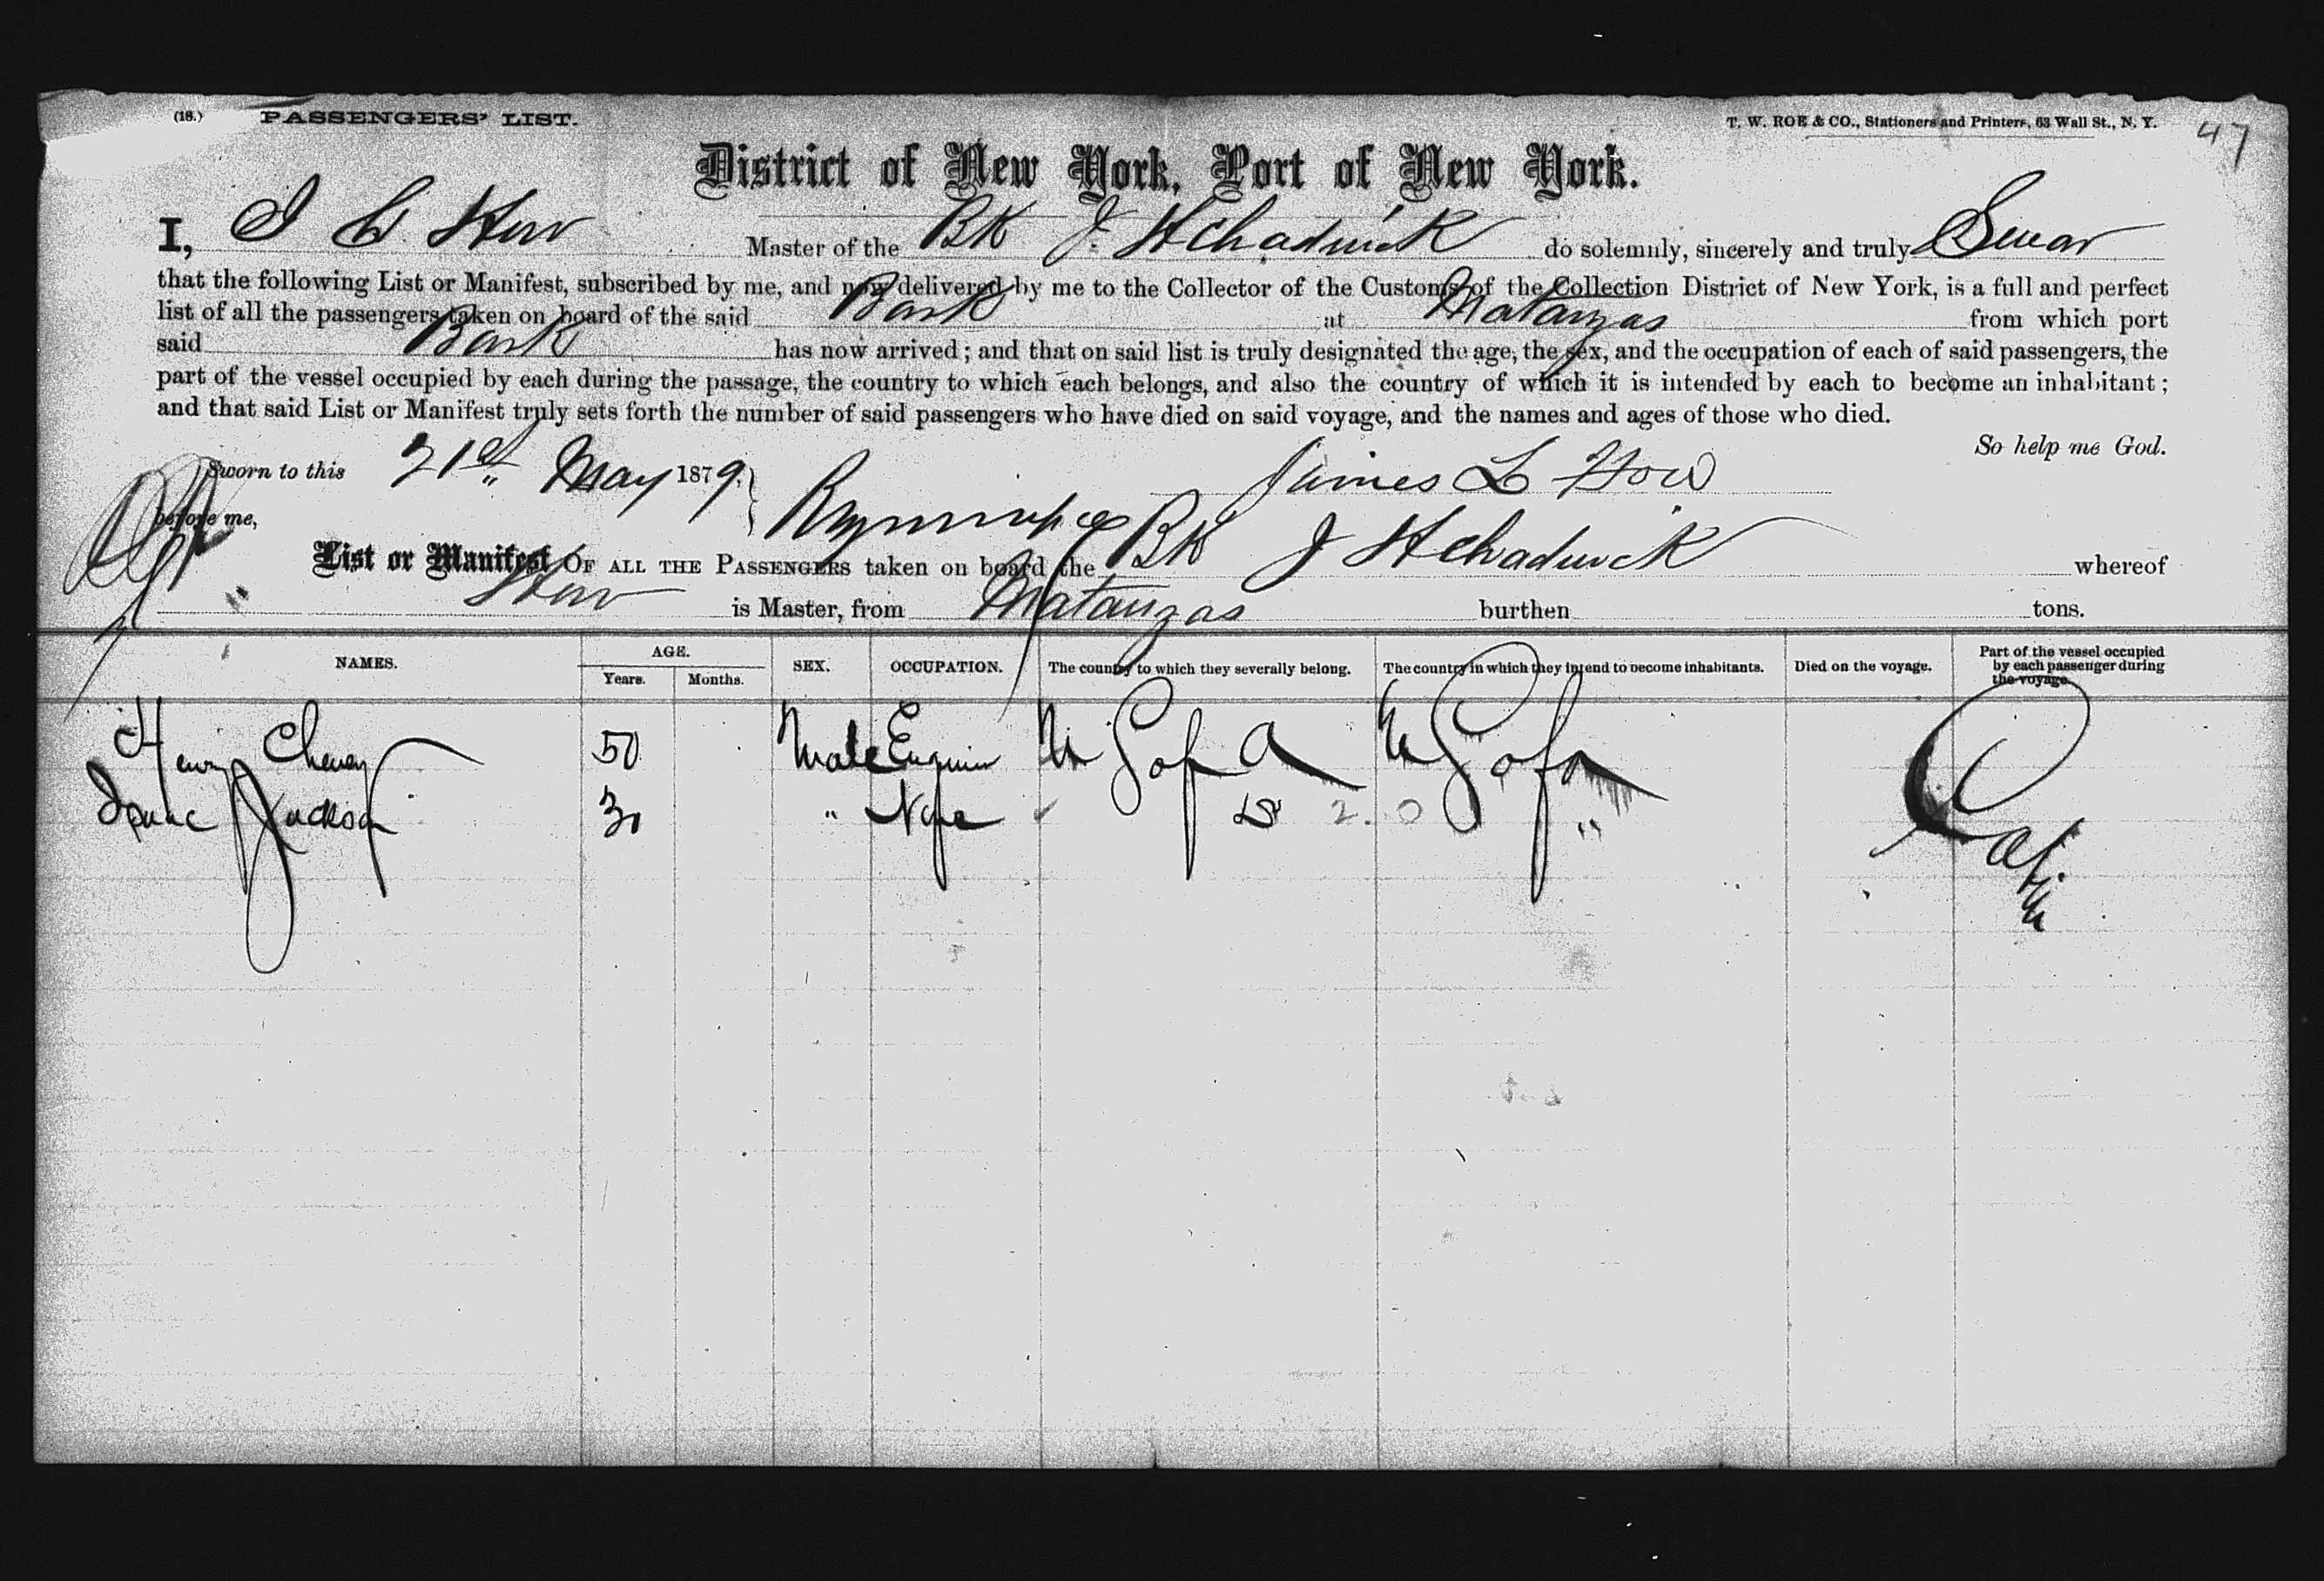 (18.) PASSENGERS' LIST. T. W. ROE & CO., Stationers and Printers, 63 Wall St., N. Y. 47
District of New York, Port of New York.
I, Master of the Bk J. H Chadwick do solemnly, sincerely and truly Swear
that the following List or Manifest, subscribed by me, and now delivered by me to the Collector of the Customs of the Collection District of New York, is a full and perfect
list of all the passengers taken on board of the said Bark at Matanzas from which port
said Bark has now arrived; and that on said list is truly designated the age, the sex, and the occupation of each of said passengers, the
part of the vessel occupied by each during the passage, the country to which each belongs, and also the country of which it is intended by each to become an inhabitant;
and that said List or Manifest truly sets forth the number of said passengers who have died on said voyage, and the names and ages of those who died.
So help me God.
Sworn to this 21st May 1879. James L
before me,
List or Manifest OF ALL THE PASSENGERS taken on board the Bk J H Chadwick whereof
is Master, from Matanzas burthen tons.
NAMES. AGE. Years. Months. SEX. OCCUPATION. The country to which they severally belong. The country in which they intend to become inhabitants. Died on the voyage. Part of the vessel occupied by each passenger during the voyage.
Henry 50 Male U S of A U S of A Cabin
Isaac Jackson 30 " 2.0 "